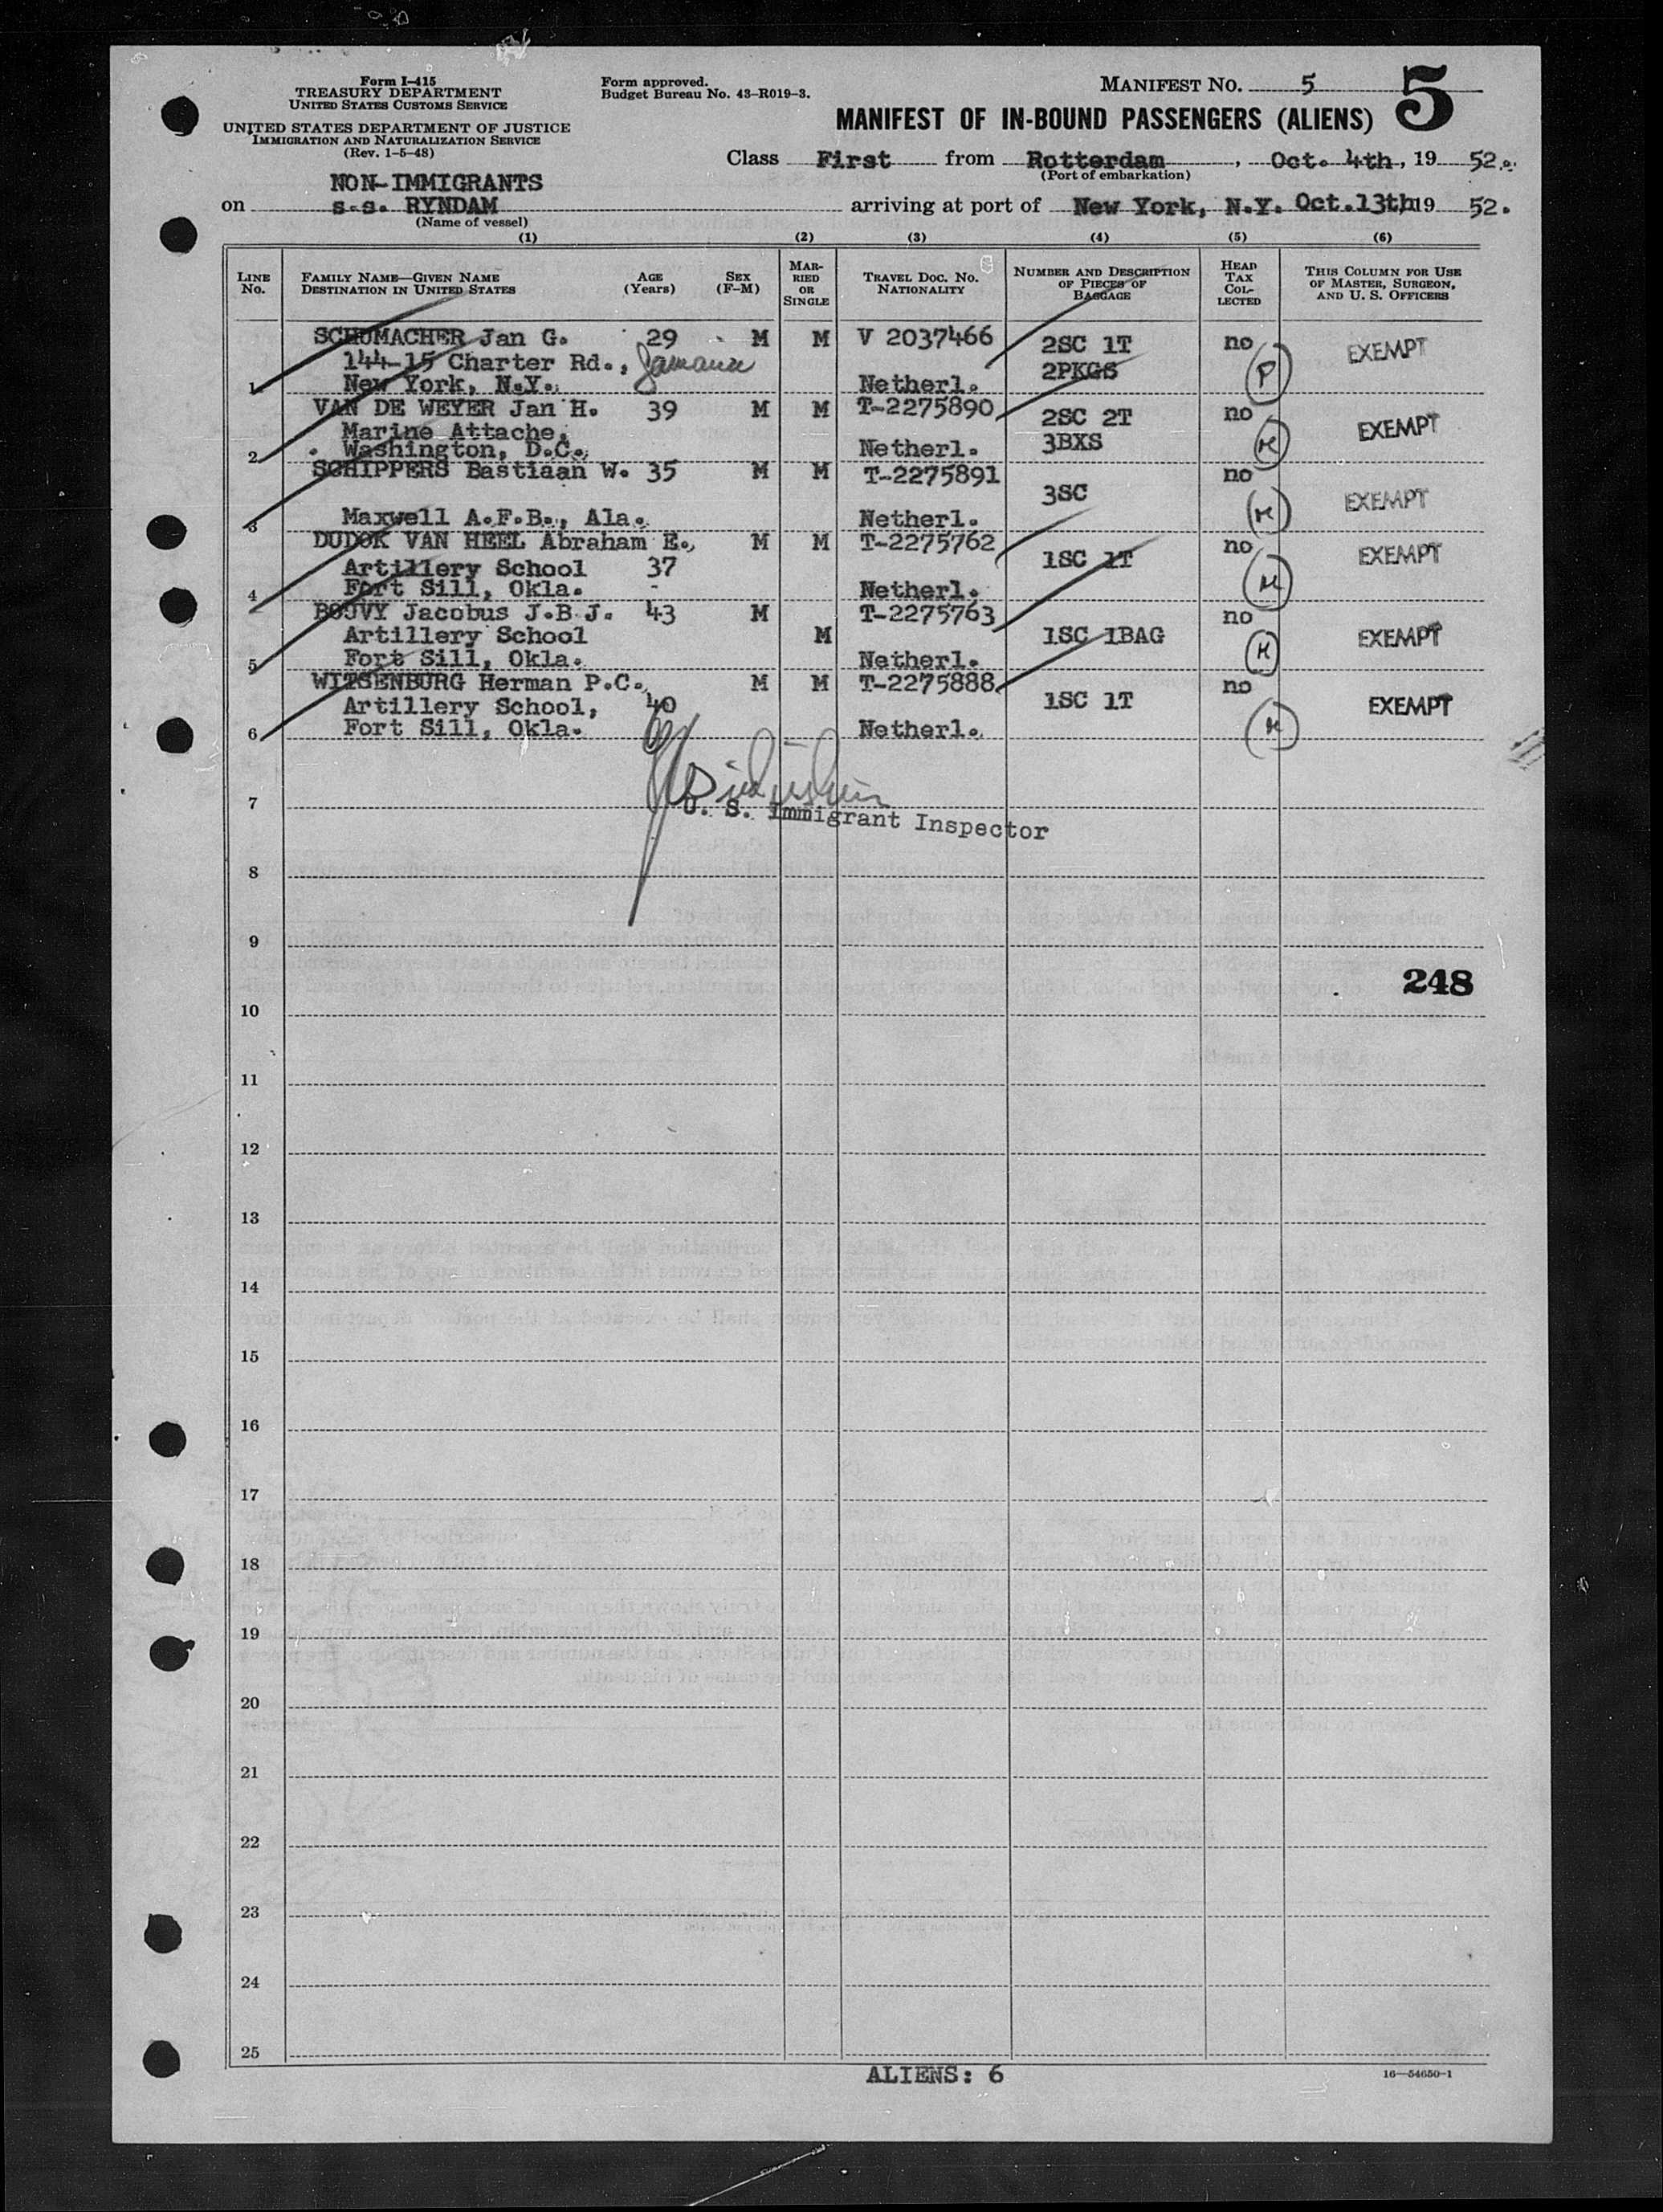 Form I-415
TREASURY DEPARTMENT
UNITED STATES CUSTOMS SERVICE
UNITED STATES DEPARTMENT OF JUSTICE
IMMIGRATION AND NATURALIZATION SERVICE
(Rev. 1-5-48)
Form approved.
Budget Bureau No. 43-R019-3.
MANIFEST NO. 5
5
MANIFEST OF IN-BOUND PASSENGERS (ALIENS)
Class First from Rotterdam, Oct. 4th, 19 52.
(Port of embarkation)
NON-IMMIGRANTS
on s.s. RYNDAM arriving at port of New York, N.Y. Oct.13th 19 52.
(Name of vessel)
(1) (2) (3) (4) (5) (6)
LINE NO. FAMILY NAME—GIVEN NAME DESTINATION IN UNITED STATES AGE (Years) SEX (F-M) MARRIED OR SINGLE TRAVEL DOC. NO. NATIONALITY NUMBER AND DESCRIPTION OF PIECES OF BAGGAGE HEAD TAX COLLECTED THIS COLUMN FOR USE OF MASTER, SURGEON, AND U. S. OFFICERS
SCHUMACHER Jan G. 29 M M V 2037466 2SC 1T no EXEMPT
144-15 Charter Rd., Jamaica 2PKGS P
1 New York, N.Y. Netherl.
VAN DE WEYER Jan H. 39 M M T-2275890 2SC 2T no EXEMPT
Marine Attache, 3BXS
2 Washington, D.C. Netherl.
SCHIPPERS Bastiaan W. 35 M M T-2275891 3SC no EXEMPT
3 Maxwell A.F.B., Ala. Netherl.
DUDOK VAN HEEL Abraham E. M M T-2275762 1SC 1T no EXEMPT
Artillery School 37
4 Fort Sill, Okla. - Netherl.
BOUVY Jacobus J.B.J. 43 M T-2275763 no
Artillery School M 1SC 1BAG EXEMPT
5 Fort Sill, Okla. Netherl.
WITSENBURG Herman P.C. M M T-2275888 1SC 1T no EXEMPT
Artillery School, 40
6 Fort Sill, Okla. Netherl.
7
U. S. Immigrant Inspector
8
9
248
10
11
12
13
14
15
16
17
18
19
20
21
22
23
24
25
ALIENS: 6
16—54650-1